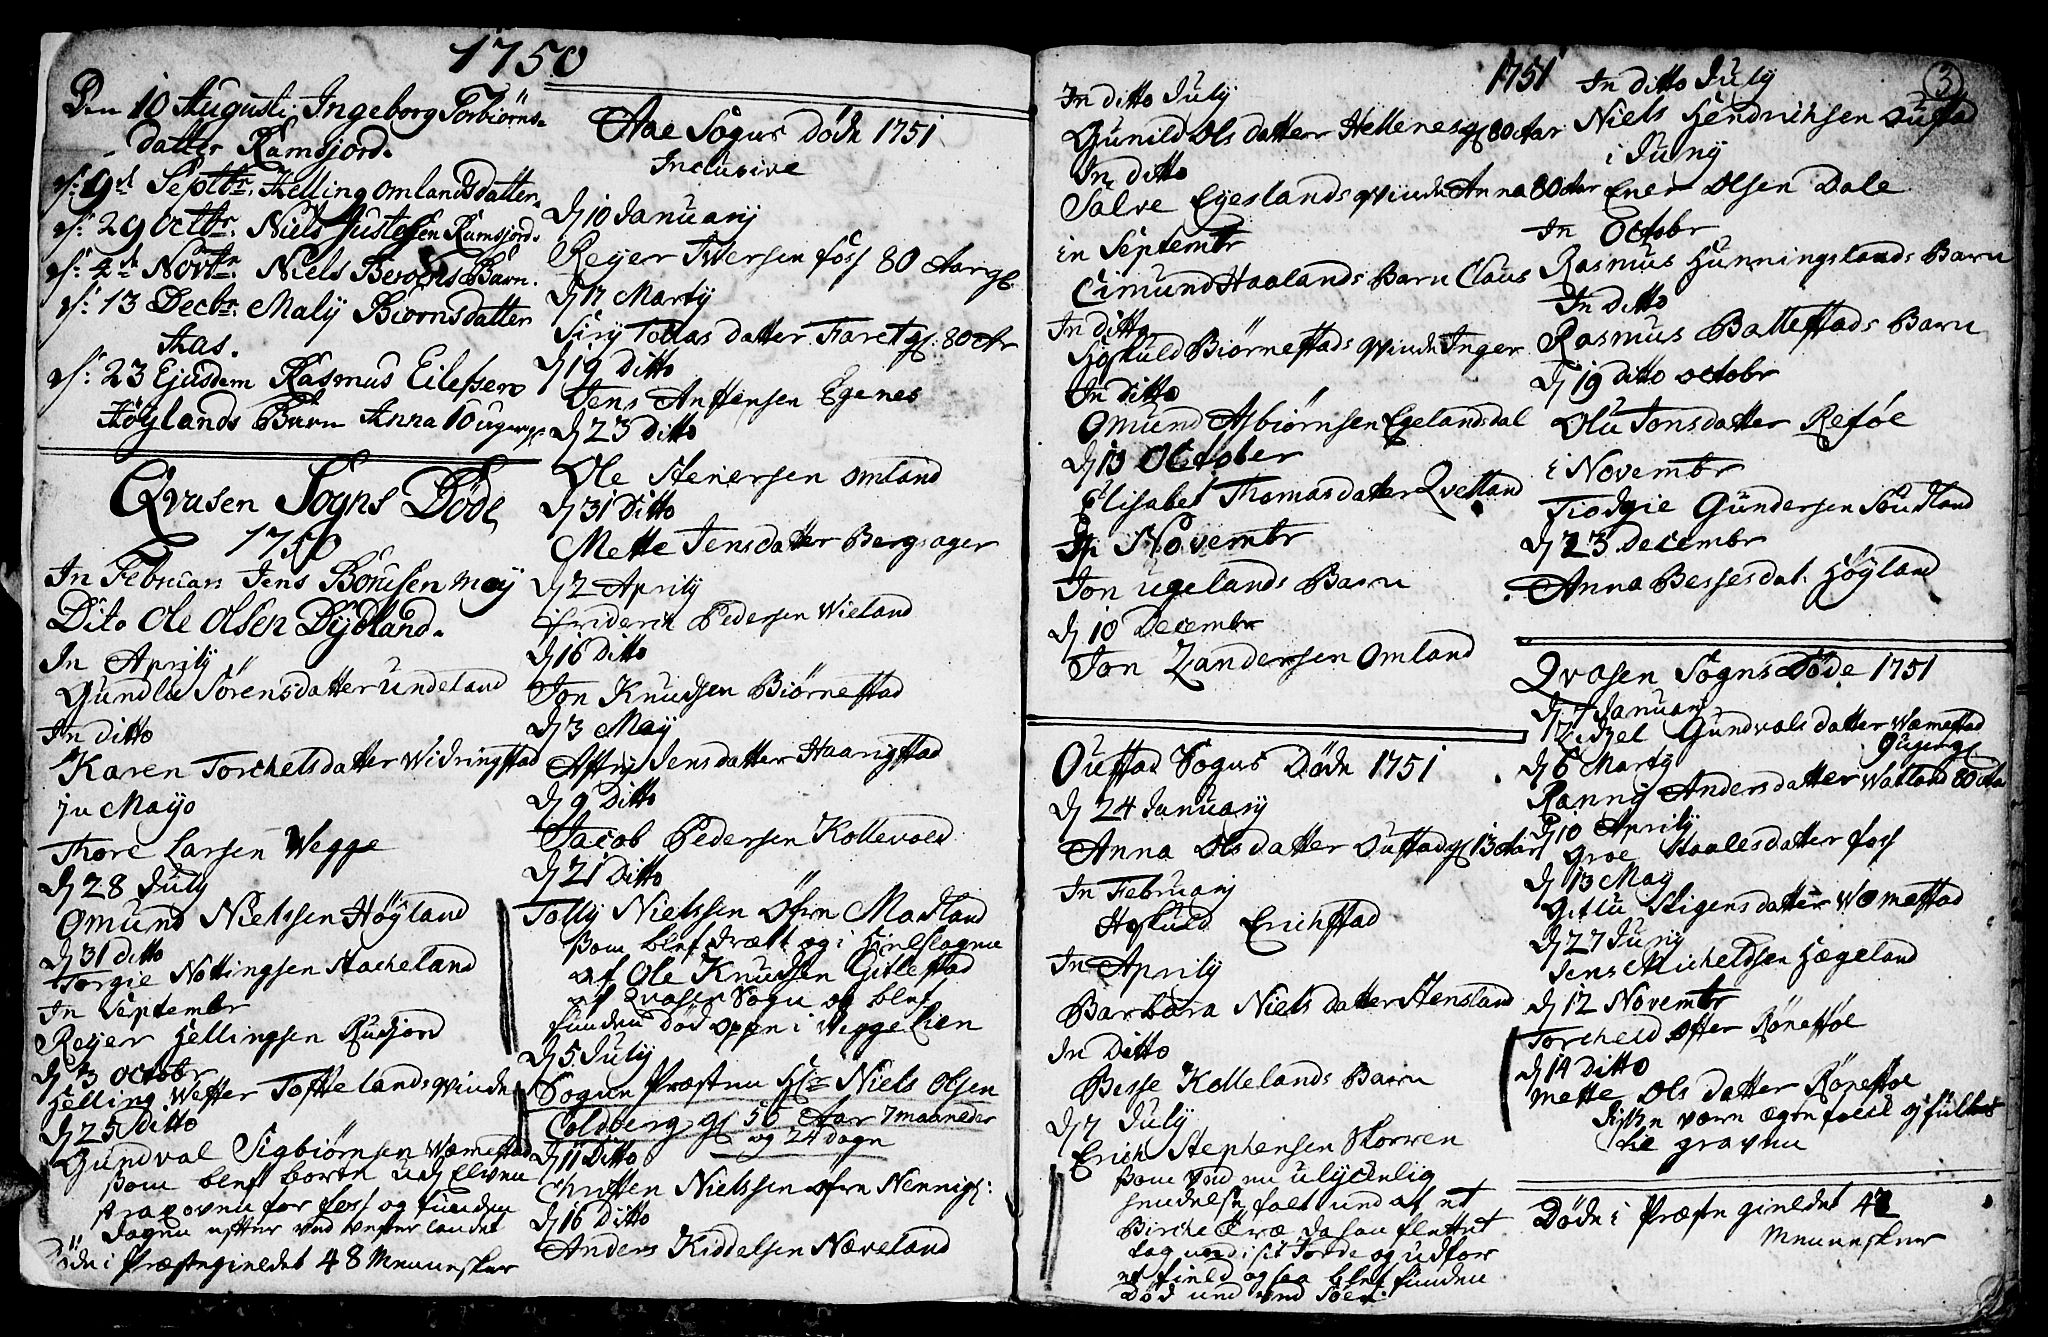 1750
Den 10 Augusti Ingeborg Torbiørns-
datter Ramsjord.
d: 9d Septbr. Helling Omlandsdatter.
d: 29 Octbr. Niels Justesen Ramsjord.
d: 4de Novbr. Niels Barn.
d: 13 Decbr. Maly Biørnsdatter
Aas.
d: 23 Ejusdem Rasmus Eilefsen
Høylands Barn Anna 10 uger gl.
Qvasen Sogns Døde
1750
In Februari Jens Bouesen Moy
Dito Ole Olsen Dydland.
In Aprily
Gundla Sørensdatter Undeland
In ditto
Karen Torchelsdatter Widringstad
in Mayo
Thore Larsen Wegge
D 28 July
Omund Nielssen Høyland
D 31 ditto
Torgie Nottingsen Stacheland
In Septembr
Reyer Hellingsen Rudjord
D 3 Octobr
Helling Wester Toftelands qvinde
D 25 Ditto
Gundval Sigbiørnsen Wæmestad
som blef borte ud Elven
for foss og funden
dagen efter ved Vesterlandet
Døde i Præstegieldet 48 Mennesker
Aae Sogns Døde 1751
Inclusive
D 10 January
Reyer Iwersen foss 80 Aar gl.
D 17 Marty
Siry Tobias datter Faret gl: 80 Ar
D 19 Ditto
Jens Anstensen Egenes
D 23 Ditto
Ole Stenersen Omland
D 31 Ditto
Mette Jensdatter Bergsager
D 2 Aprily
friderich Pedersen Wieland
D 16 Ditto
Jon Knudsen Biørnestad
D 3 May
Astry Jensdatter Haarigstad
D 9 Ditto
Jacob Pedersen Kollevold
D 21 Ditto
Tolly Nielssen Øfre Madland
som blef dræbt og i Hielslagen
af Ole Knudsen Gitlestad
af Qvasen Sogn og blef
funden død oppe i Weggelien
D 5 July
Sogne Præsten Hr Niels Olsen
Coldberg gl 56 Aar 7 maaneder
og 24 dage
D 11 Ditto
Christen Nielssen Øfre Nennigs:
D 16 Ditto
Anders Kiddelsen Næveland
1751
3
In ditto July
Gunild Ols datter Hellenes gl 80 Aar
In ditto
Salve Egeslands qvinde Anna 80 Aar
in Septembr
Eimund Haalands Barn Claus
In ditto
Hoskuld Biørnestads qvinde Inger
In Ditto
Omund Asbiørnsen Egelandsdal
D 13 October
Elisabet Thomasdatter Qvelland
In Novembr
Jon Ugelands Barn
D 10 Decembr
Jon Zandersen Omland
Oufstad Sogns Døde 1751
D 24 January
Anna Ols datter Oufstad gl 13 Aar
In February
Hoskuld Erichstad
In Aprily
Barbara Niels datter Stensland
In Ditto
Besse Kollelands Barn
D 7 July
Erich Stephensen Skorren
som ved en ulyckelig
hendelse falt ned af et
Birche Træ da han flettet
tag ned i sit Jorde og udfor
et field og saa blef funden
Død ned ved Søen.
In ditto July
Niels Hendrichsen Oufstad
i Juny
Ener Olsen Dale
In Octobr
Rasmus Hunningslands Barn
In Ditto
Rasmus Ballestads Barn
D 19 Ditto Octobr
Olu Jonsdatter Refsøe
i Novembr
Tiodgie Gundersen Soudland
D 23 Decembr
Anna Bessesdat. Høyland
Qvasen Sogns Døde 1751
D 7 January
Zidzel Gundvals datter Wæmestad
9 uger gl
D 6 Marty
Ranny Anders datter Watland 80 Aar
D 10 Aprily
Groe Staalesdatter foss
D 13 May
Gitlu Stigens datter Womestad
D 27 Juny
Jens Micheldsen Hægeland
D 12 Novembr
Torcheld Ofter Rønessøl
D 14 Ditto
Mette Ols datter Rønessøl
disse vare ægtefolck og fultes
til graven
Døde i Præste gieldet 42
Mennesker